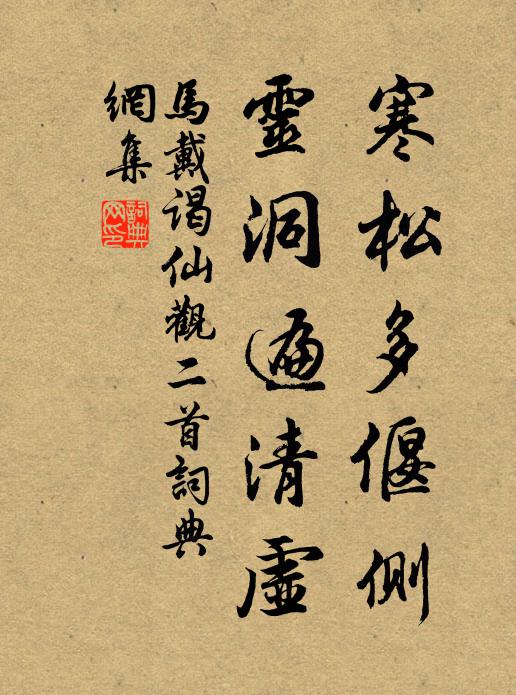 寒松多偃側
靈洞遍清虛
馬戴謁仙觀二首詞典
網集
詞典網印